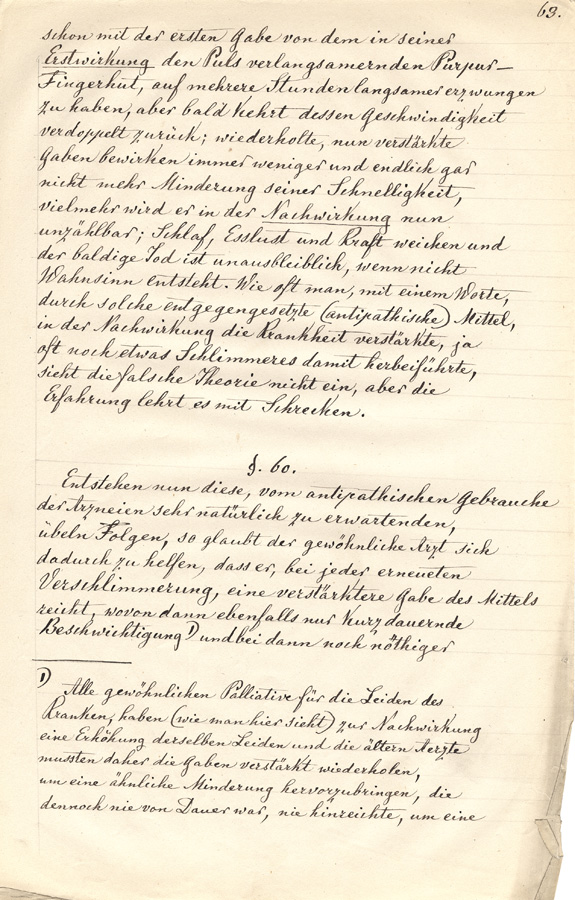 63.
schon mit der ersten Gabe von dem in seiner
Erstwirkung den Puls verlangsamernden Purpur-
Fingerhut, auf mehrere Stunden langsamer erzwungen
zu haben, aber bald kehrt dessen Geschwindigkeit
verdoppelt zurück; wiederholte, nun verstärkte
Gaben bewirken immer weniger und endlich gar
nicht mehr Minderung seiner Schnelligkeit,
vielmehr wird er in der Nachwirkung nun
unzählbar; Schlaf, Esslust und Kraft weichen und
der baldige Tod ist unausbleiblich, wenn nicht
Wahnsinn entsteht. Wie oft man, mit einem Worte,
durch solche entgegengesetzte (antipathische) Mittel,
in der Nachwirkung die Krankheit verstärkte, ja
oft noch etwas Schlimmeres damit herbeiführte,
sieht die falsche Theorie nicht ein, aber die
Erfahrung lehrt es mit Schrecken.
§. 60.
Entstehen nun diese, vom antipathischen Gebrauche
der Arzneien sehr natürlich zu erwartenden,
übeln Folgen, so glaubt der gewöhnliche Arzt sich
dadurch zu helfen, dass er, bei jeder erneueten
Verschlimmerung, eine verstärktere Gabe des Mittels
reicht, wovon dann ebenfalls nur kurz dauernde
Beschwichtigung 1) und bei dann noch nöthiger
1) Alle gewöhnlichen Palliative für die Leiden des
Kranken, haben (wie man hier sieht) zur Nachwirkung
eine Erhöhung derselben Leiden und die ältern Aerzte
mussten daher die Gaben verstärkt wiederholen,
um eine ähnliche Minderung hervorzubringen, die
dennoch nie von Dauer war, nie hinreichte, um eine